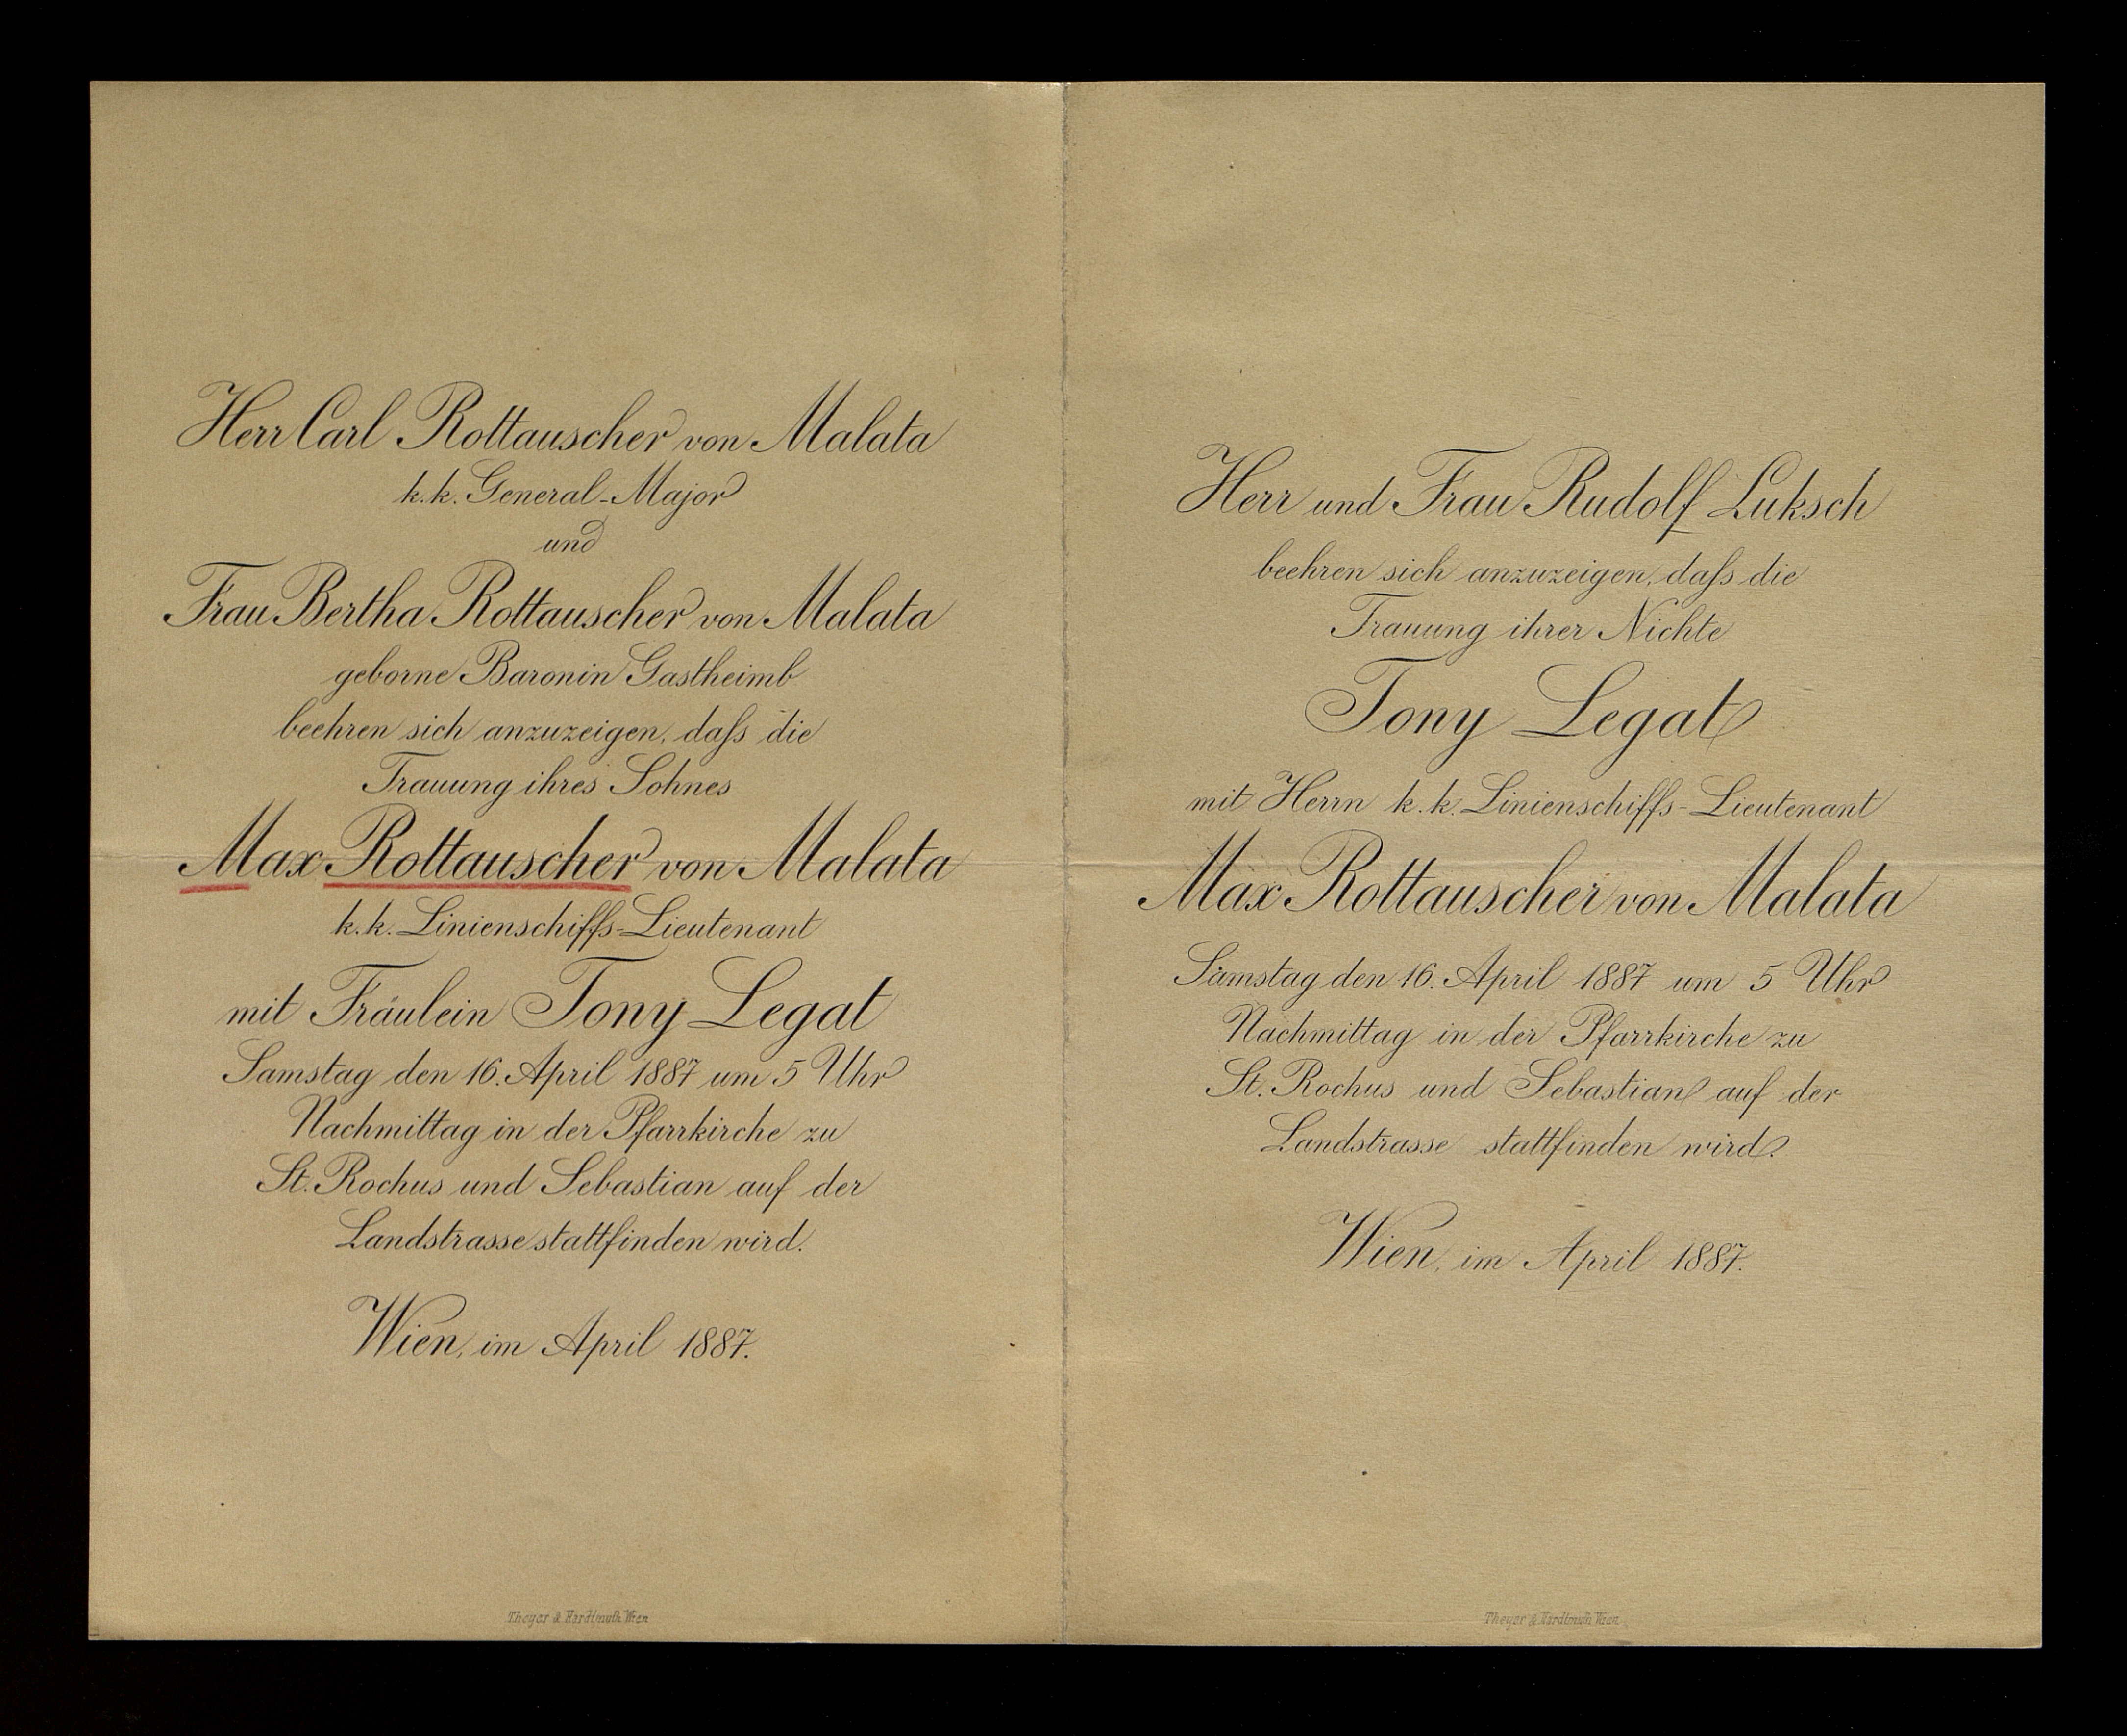 Herr Carl Rottauscher von Malata
k.k. General-Major
und
Frau Bertha Rottauscher von Malata
geborne Baronin Gastheimb
beehren sich anzuzeigen, daſs die
Trauung ihres Sohnes
Max Rottauscher von Malata
k.k. Linienschiffs-Lieutenant
mit Fräulein Tony Legat
Samstag den 16. April 1887 um 5 Uhr
Nachmittag in der Pfarrkirche zu
St. Rochus und Sebastian auf der
Landstrasse stattfinden wird.
Wien, im April 1887.
Theyer & Hardtmuth Wien
Herr und Frau Rudolf Luksch
beehren sich anzuzeigen, daſs die
Trauung ihrer Nichte
Tony Legat
mit Herrn k.k. Linienschiffs-Lieutenant
Max Rottauscher von Malata
Samstag den 16. April 1887 um 5 Uhr
Nachmittag in der Pfarrkirche zu
St. Rochus und Sebastian auf der
Landstrasse stattfinden wird.
Wien, im April 1887.
Theyer & Hardtmuth Wien